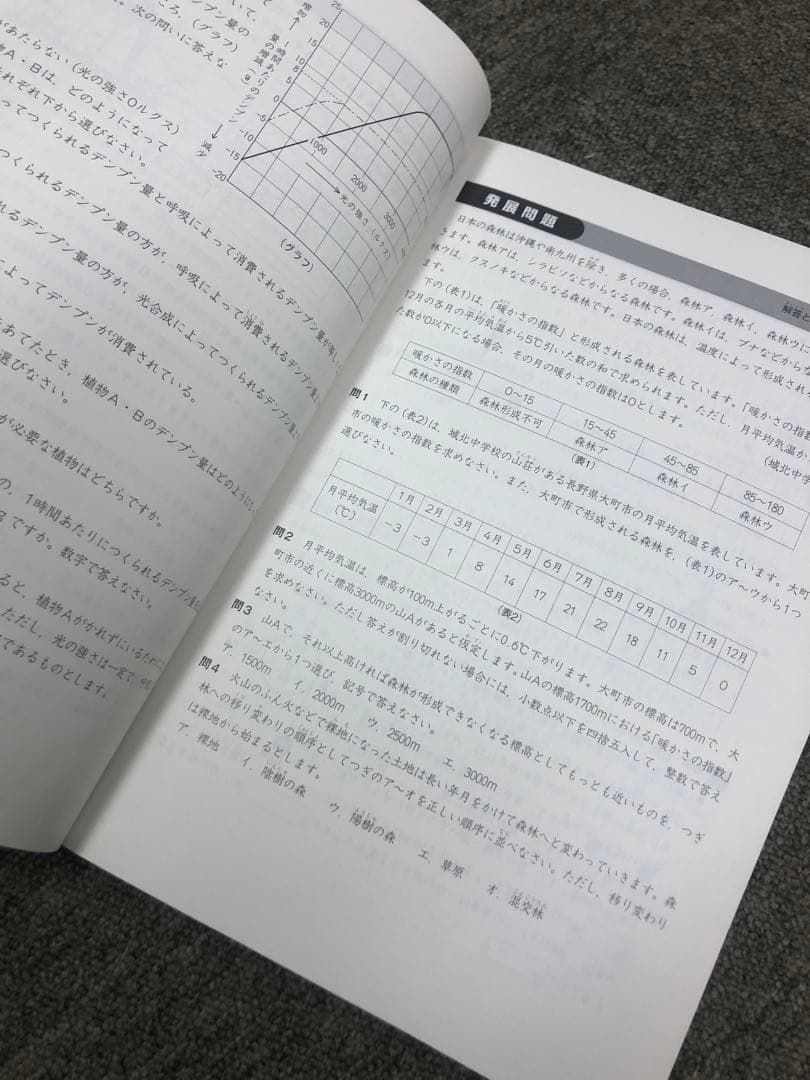 いて、
デンプン量の
ころ、(グラフ)
。次の問いに答えな
があたらない(光の強さ0ルクス)
植物A・Bは、どのようになって
それぞれ下から選びなさい。
ってつくられるデンプン量と呼吸によって消費されるデンプン量が等し
つくられるデンプン量の方が、呼吸によって消費されるデンプン量
れるデンプン量の方が、光合成によってつくられるデンプン量
によってデンプンが消費されている。
をあてたとき、植物A・Bのデンプン量はどのように
選びなさい。
が必要な植物はどちらですか。
の、1時間あたりにつくられるデンプン量
ですか。数字で答えなさい。
ると、植物Aがかれずにいるために
ただし、光の強さは一定で、
であるものとします。
増加
1時間あたりのデンプン量の増減(g)
減少
25
20
15
10
8
5
0
-5
-10
-15
-20
1000
2000
3000
光の強さ(ルクス)
(グラフ)
発展問題
解答と
日本の森林は沖縄や南九州を除き、多くの場合、森林ア、森林イ、森林ウに
きます。森林アは、シラビソなどからなる森林です。森林イは、ブナなどからな
林ウは、クスノキなどからなる森林です。日本の森林は、温度によって形成され
ます。
下の(表1)は、「暖かさの指数」と形成される森林を表しています。「暖かさの指数
12月の各月の平均気温から5℃引いた数の和で求められます。ただし、月平均気温か
た数が0以下になる場合、その月の暖かさの指数は0とします。
(城北中学
暖かさの指数 0~15 15~45 45~85 85~180
森林の種類 森林形成不可 森林ア 森林イ 森林ウ
(表1)
問1 下の(表2)は、城北中学校の山荘がある長野県大町市の月平均気温を表しています。大町
市の暖かさの指数を求めなさい。また、大町市で形成される森林を、(表1)のア~ウから1つ
選びなさい。
1月 2月 3月 4月 5月 6月 7月 8月 9月 10月 11月 12月
月平均気温〔℃〕 -3 -3 1 8 14 17 21 22 18 11 5 0
(表2)
問2 月平均気温は、標高が100m上がるごとに0.6℃下がります。大町市の標高は700mで、大
町市の近くに標高3000mの山Aがあると仮定します。山Aの標高1700mにおける「暖かさの指数」
を求めなさい。ただし答えが割り切れない場合には、小数点以下を四捨五入して、整数で答え
なさい。
問3 山Aで、それ以上高ければ森林が形成できなくなる標高としてもっとも近いものを、つぎ
のア~エから1つ選び、記号で答えなさい。
ア．1500m イ．2000m ウ．2500m エ．3000m
問4 火山のふん火などで裸地になった土地は長い年月をかけて森林へと変わっていきます。森
林への移り変わりの順序としてつぎのア~オを正しい順序に並べなさい。ただし、移り変わり
は裸地から始まるとします。
ア．裸地 イ．陰樹の森 ウ．陽樹の森 エ．草原 オ．混交林